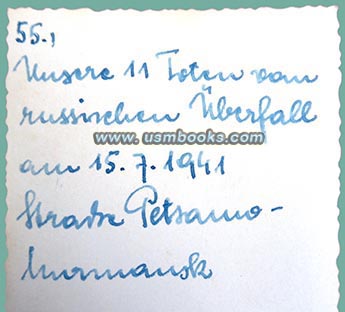 55.,
Unsere 11 Toten vom
russischen Überfall
www.usmbooks.com
am 15.7.1941
Straße Petsamo-
Murmansk